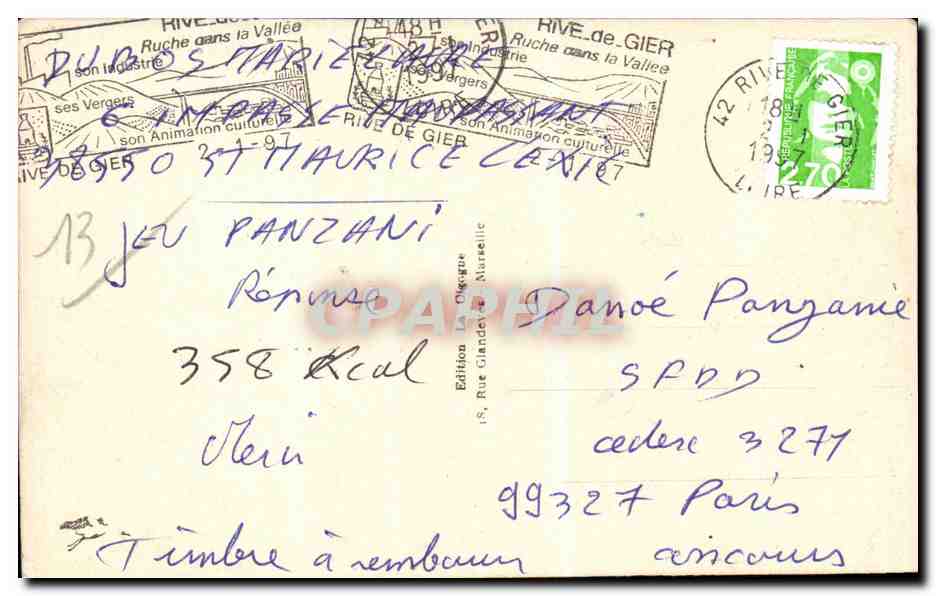 RIVE-de-GIER
Ruche dans la Vallée
son Industrie
ses Vergers
son Animation culturelle
RIVE DE GIER
2-1-97
RIVE-de-GIER
Ruche dans la Vallée
son Industrie
ses Vergers
son Animation culturelle
RIVE DE GIER
2-1-97
18 H
42 RIVE DE GIER
18 H
2-1
1997
LOIRE
REPUBLIQUE FRANÇAISE
LA POSTE
2,70
DUBOS MARIE LAURE
6 IMPASSE MAUPASSANT
38550 ST MAURICE L'EXIL
13
JEU PANZANI
Réponse
358 Kcal
Merci
Timbre à rembour
Edition La Cigogne
18, Rue Glandevès, Marseille
Danoé Panzanie
SFDD
cedex 3271
99327 Paris
concours
CPAPHIL